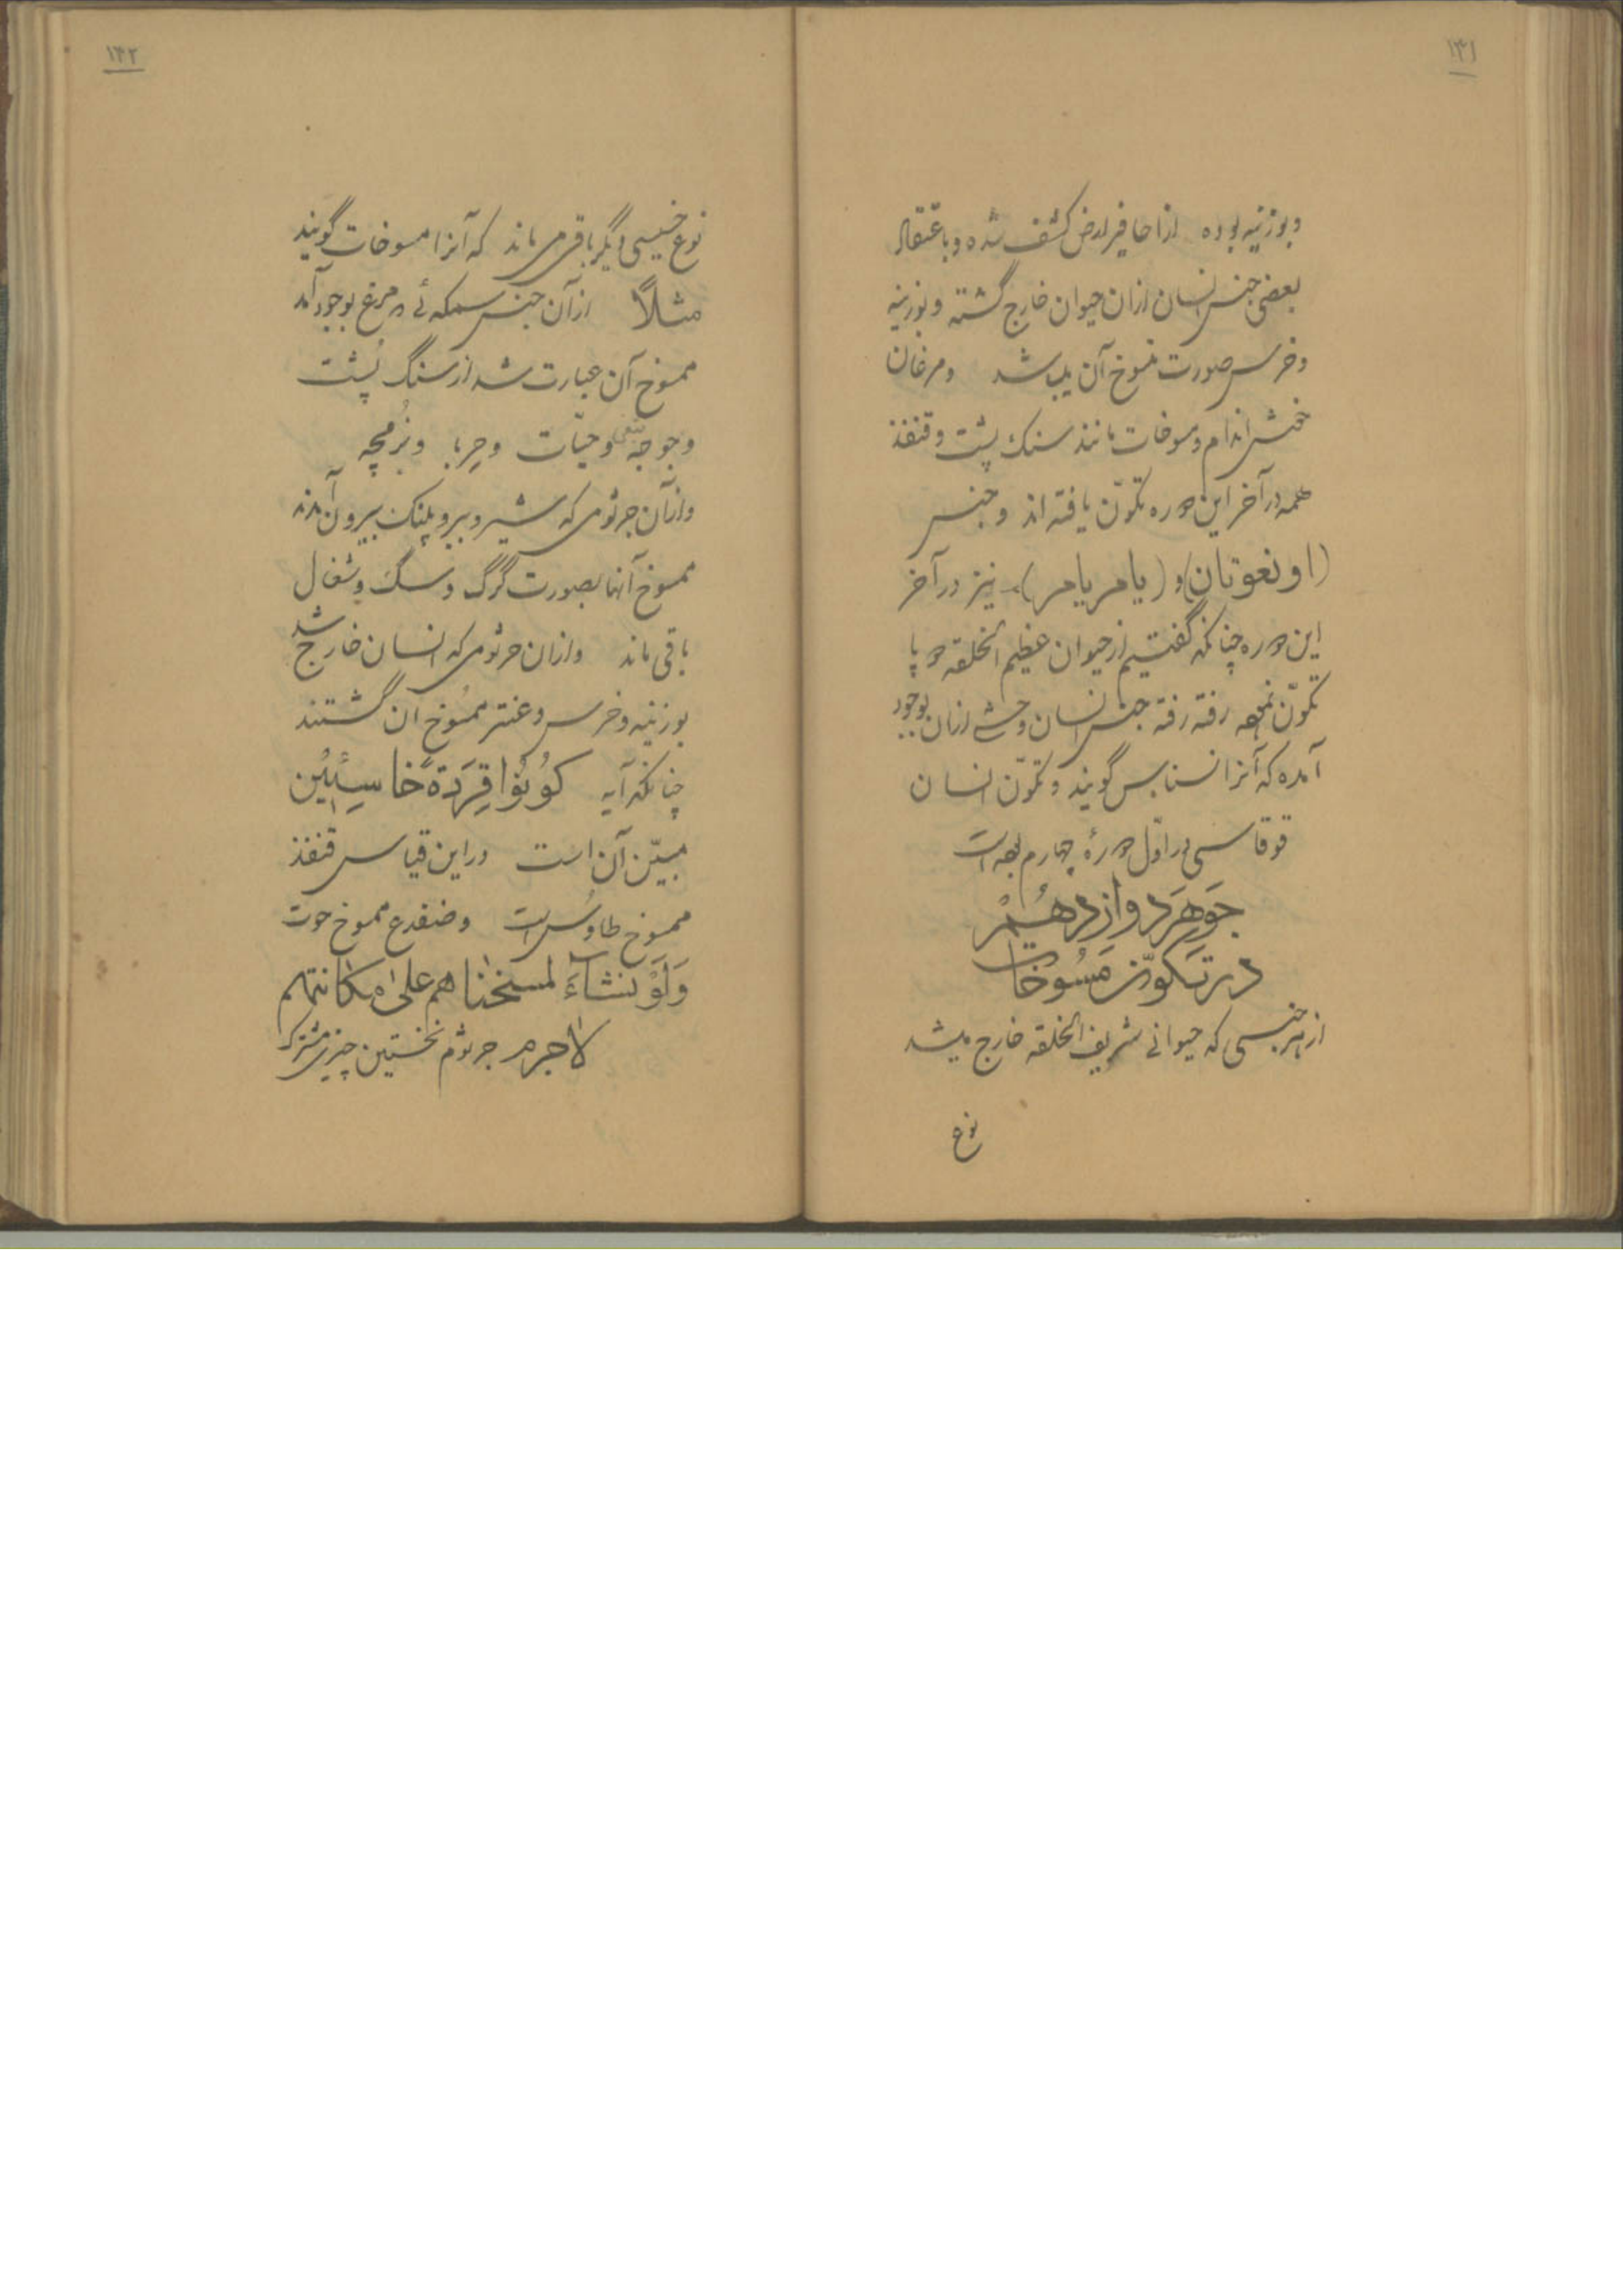 ١٣١
وبوزینه بوده از احافیر ارض کشف شده و باعتقاد
بعضی جنس انسان از ان حیوان خارج گشته و بوزینه
وخرس صورت منسوخ آن میباشد ومرغان
خشن اندام ومسوخات مانند سنک پشت وقنفذ
همه در آخر این دوره تکوّن یافته اند وجنس
(اونغوتان) و (یامریامر) نیز در آخر
این دوره چنانکه گفتیم از حیوان عظیم الخلقه دو پا
تکوّن نموده رفته رفته جنس انسان وحشی از ان بوجود
آمده که آنرا نسناس گویند وتکوّن انسان
قوقاسی در اوّل دورهٔ چهارم بوده است
جَوهَرَ دوازدهُمْ
در تکوّن مَسُوخات
از هر جنسی که حیوانی شریف الخلقه خارج میشد
نوع
١٣٢
نوع خسیسی دیگر باقی می ماند که آنرا مسوخات گویند
مثلاً از آن جنس سمکه ئی که مرغ بوجود آمد
ممسوخ آن عبارت شد از سنگ پُشت
وجوجه تیغی وحیّات وحِربا وبُزمچه
واز آن جرثومی که شیر و ببر و پلنک بیرون آمدند
ممسوخ آنها بصورت گرگ و سگ و شغال
باقی ماند واز ان جرثومی که انسان خارج شد
بوزینه وخرس وعنتر ممسُوخ ان گشتند
چنانکه آیه کوُنوُا قِرَدَةً خاسِئیُن
مبیّن آن است وبر این قیاس قنفذ
ممسوخ طاوُس است وضفدع ممسوخ حوت
وَلَوْ نَشآءَ لمسخناهم علیٰ مکانتهم
لاجرم جرثوم نخستین چیزی مشترک